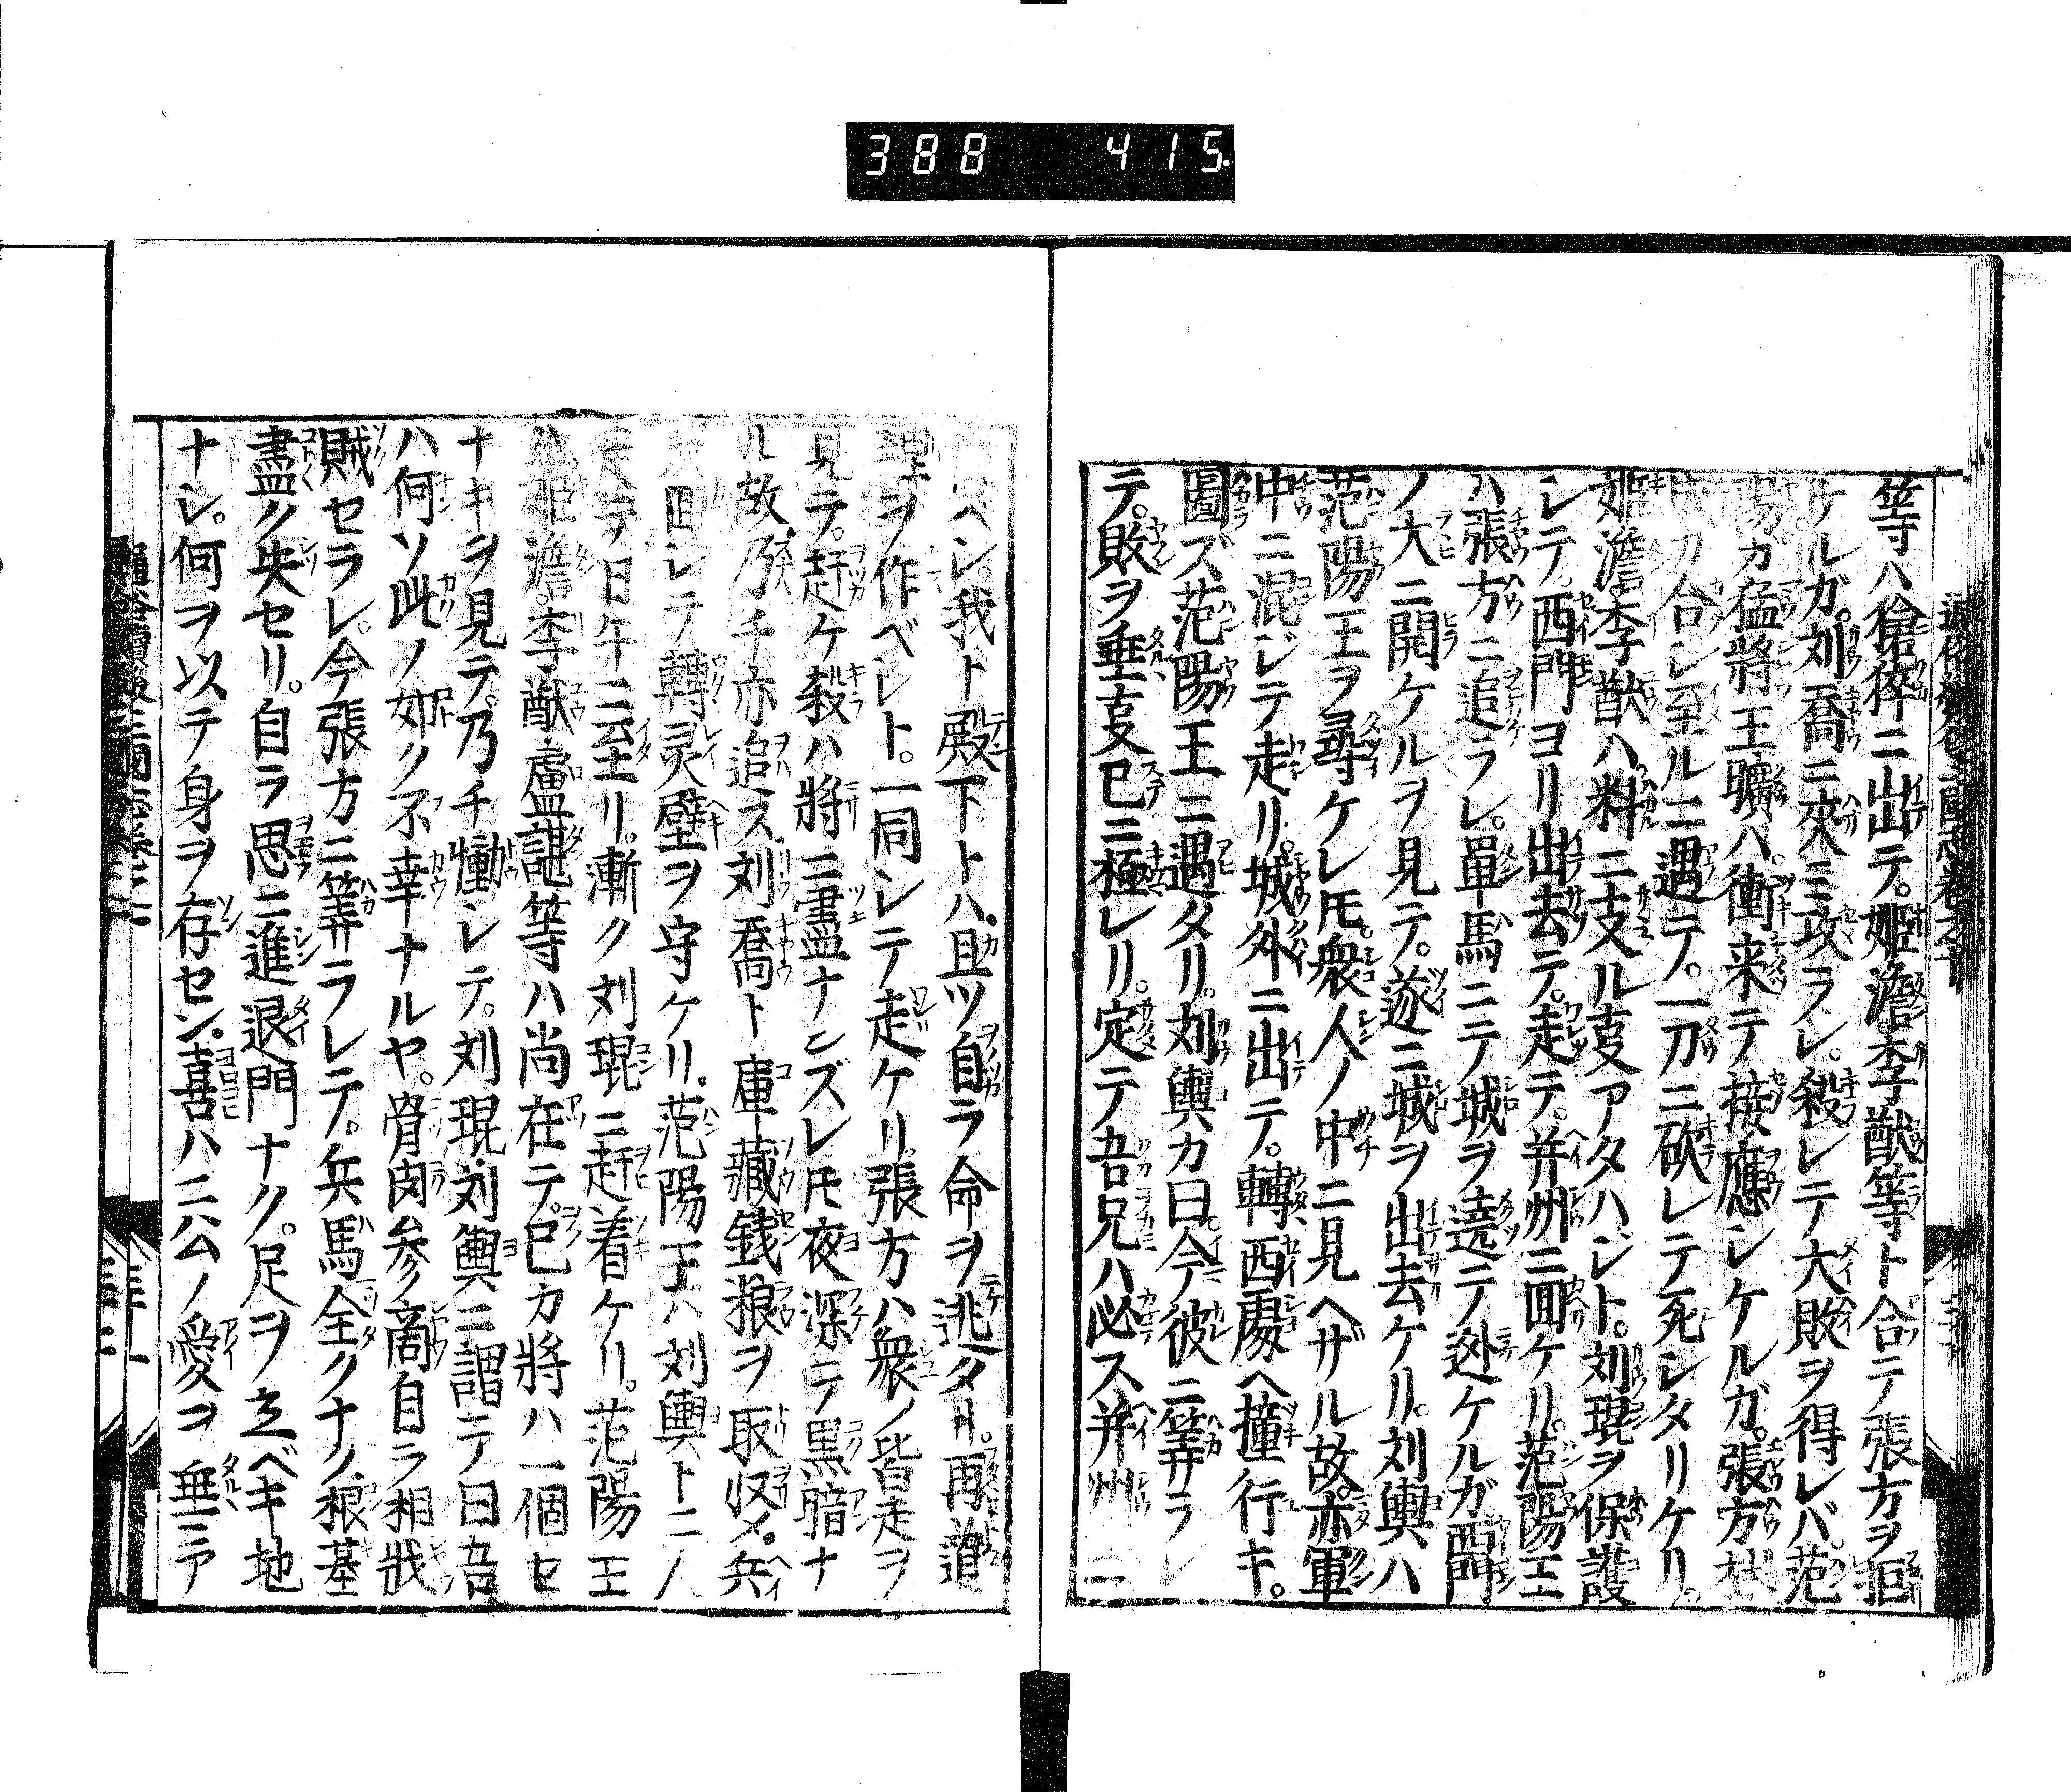 388 415.
等ハ倉倅ニ出テ。姫澹李猷等ト合テ張方ヲ拒
ケルガ。刘喬ニ夾ミ攻ラレ。殺レテ大敗ヲ得レバ。范
陽ガ猛將王曠ハ衝来テ接應シケルガ。張方
刀合シ至ルニ遇テ。一刀ニ砍レテ死シタリケリ。
姫澹李猷ハ料ニ支ル㕝アタハジト。刘琨ヲ保護
シテ。西門ヨリ出去テ。走テ。并州ニ囬ケリ。范陽王
ハ張方ニ追ラレ。單馬ニテ城ヲ遶テ迯ケルガ西門
ノ大ニ開ケルヲ見テ。遂ニ城ヲ出去ケリ。刘輿ハ
范陽王ヲ尋ケレ𪜈。衆人ノ中ニ見ヘザル故。亦軍
中ニ混ジテ走リ。城外ニ出テ。轉西處ヘ撞行キ。
圖ズ范陽王ニ遇タリ。刘輿カ曰。今彼ニ筭ラレ
テ。敗ヲ垂㕝已ニ極レリ。定テ吾兄ハ必ス并州ニ
ヘン。我ト殿下トハ。且ツ自ラ命ヲ逃タリ。再道
理ヲ作ベシト。一同シテ走ケリ。張方ハ衆ノ皆走ヲ
見テ。赶ケ殺ハ將ニ盡ナンズレ𪜈夜深テ黒暗ナ
ル故。乃チ亦追ス。刘喬ト庫藏銭粮ヲ取収メ。兵
囬シテ轉灵壁ヲ守ケリ。范陽王ハ刘輿ト二人
テ日午ニ至リ。漸ク刘琨ニ赶着ケリ。范陽王
ハ姫澹。李猷盧諶等ハ尚在テ。已カ將ハ一個セ
ナキヲ見テ。乃チ慟シテ。刘琨刘輿ニ謂テ曰吾
ハ何ソ此ノ如ク不幸ナルヤ。骨肉参商自ラ相戕
賊セラレ。今張方ニ筭ラレテ。兵馬全クナク根基
盡ク失セリ。自ラ思ニ進退門ナク。足ヲ立ベキ地
ナシ。何ヲ以テ身ヲ存セン。喜ハ二公ノ愛ヲ垂ミア